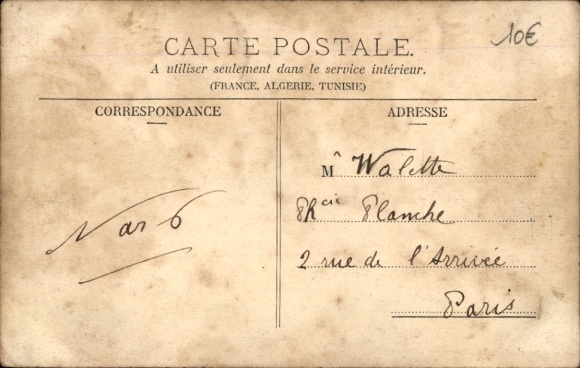 10€
CARTE POSTALE.
A utiliser seulement dans le service intérieur.
(FRANCE, ALGERIE, TUNISIE)
CORRESPONDANCE
ADRESSE
M Walette
Phcie Planche
2 rue de l'Arrivée
Paris